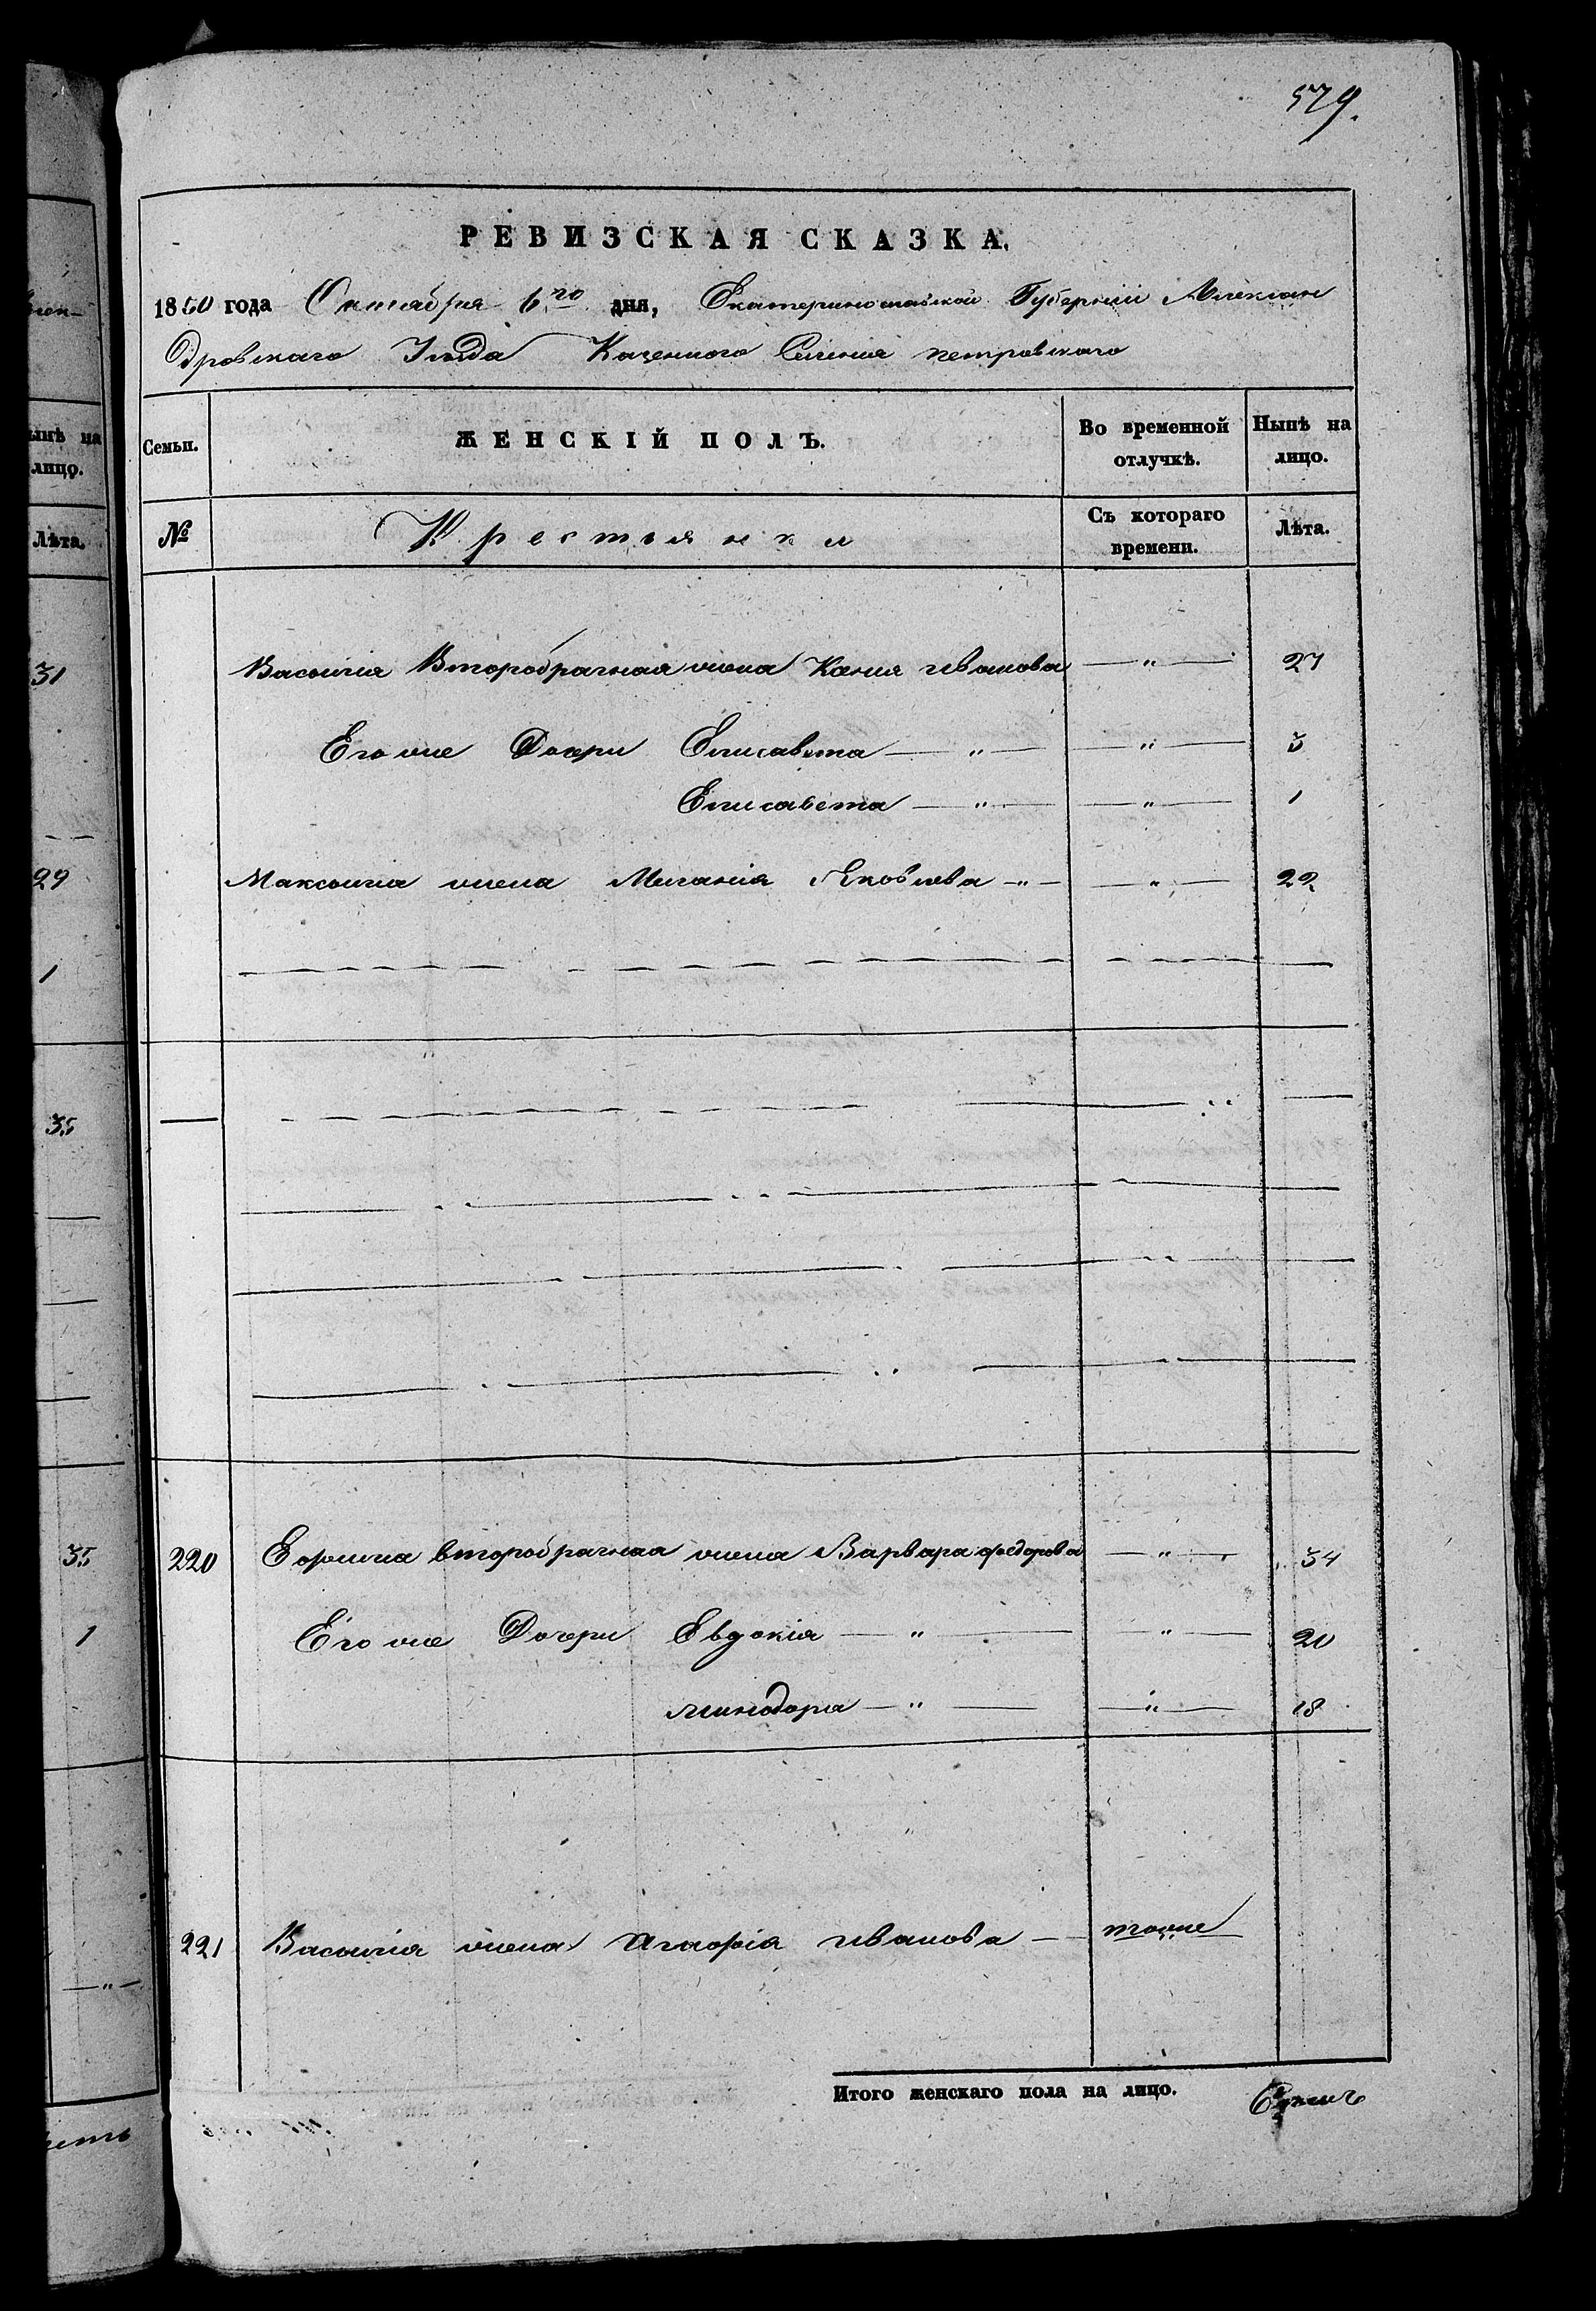 579.
РЕВИЗСКАЯ СКАЗКА.
1850 года Октября 6го дня, Екатеринославской Губерніи Алексан
Дровскаго Уезда Казенного Селения петровскаго
Семьи. ЖЕНСКІЙ ПОЛЪ. Во временной отлучкѣ. Нынѣ на лицо.
№ Крестьянки Съ котораго времени. Лѣта.
Василія Второбрачная жена Ксенія иванова — " — 27
Его же Дочери Елисавета — " — — " — 3
Елисавета — " — — " — 1
Максима жена Меланія Яковлева — " — — " — 22
220 Ефима второбрачная жена Варвара федорова — " — 34
Его же Дочери Евдокія — " — — " — 20
минодора — " — — " — 18
221 Василія жена Агафія иванова — тоже
Итого женскаго пола на лицо. Семь
ынѣ на
лицо.
Лѣта.
31
29
1
35
35
1
— " —